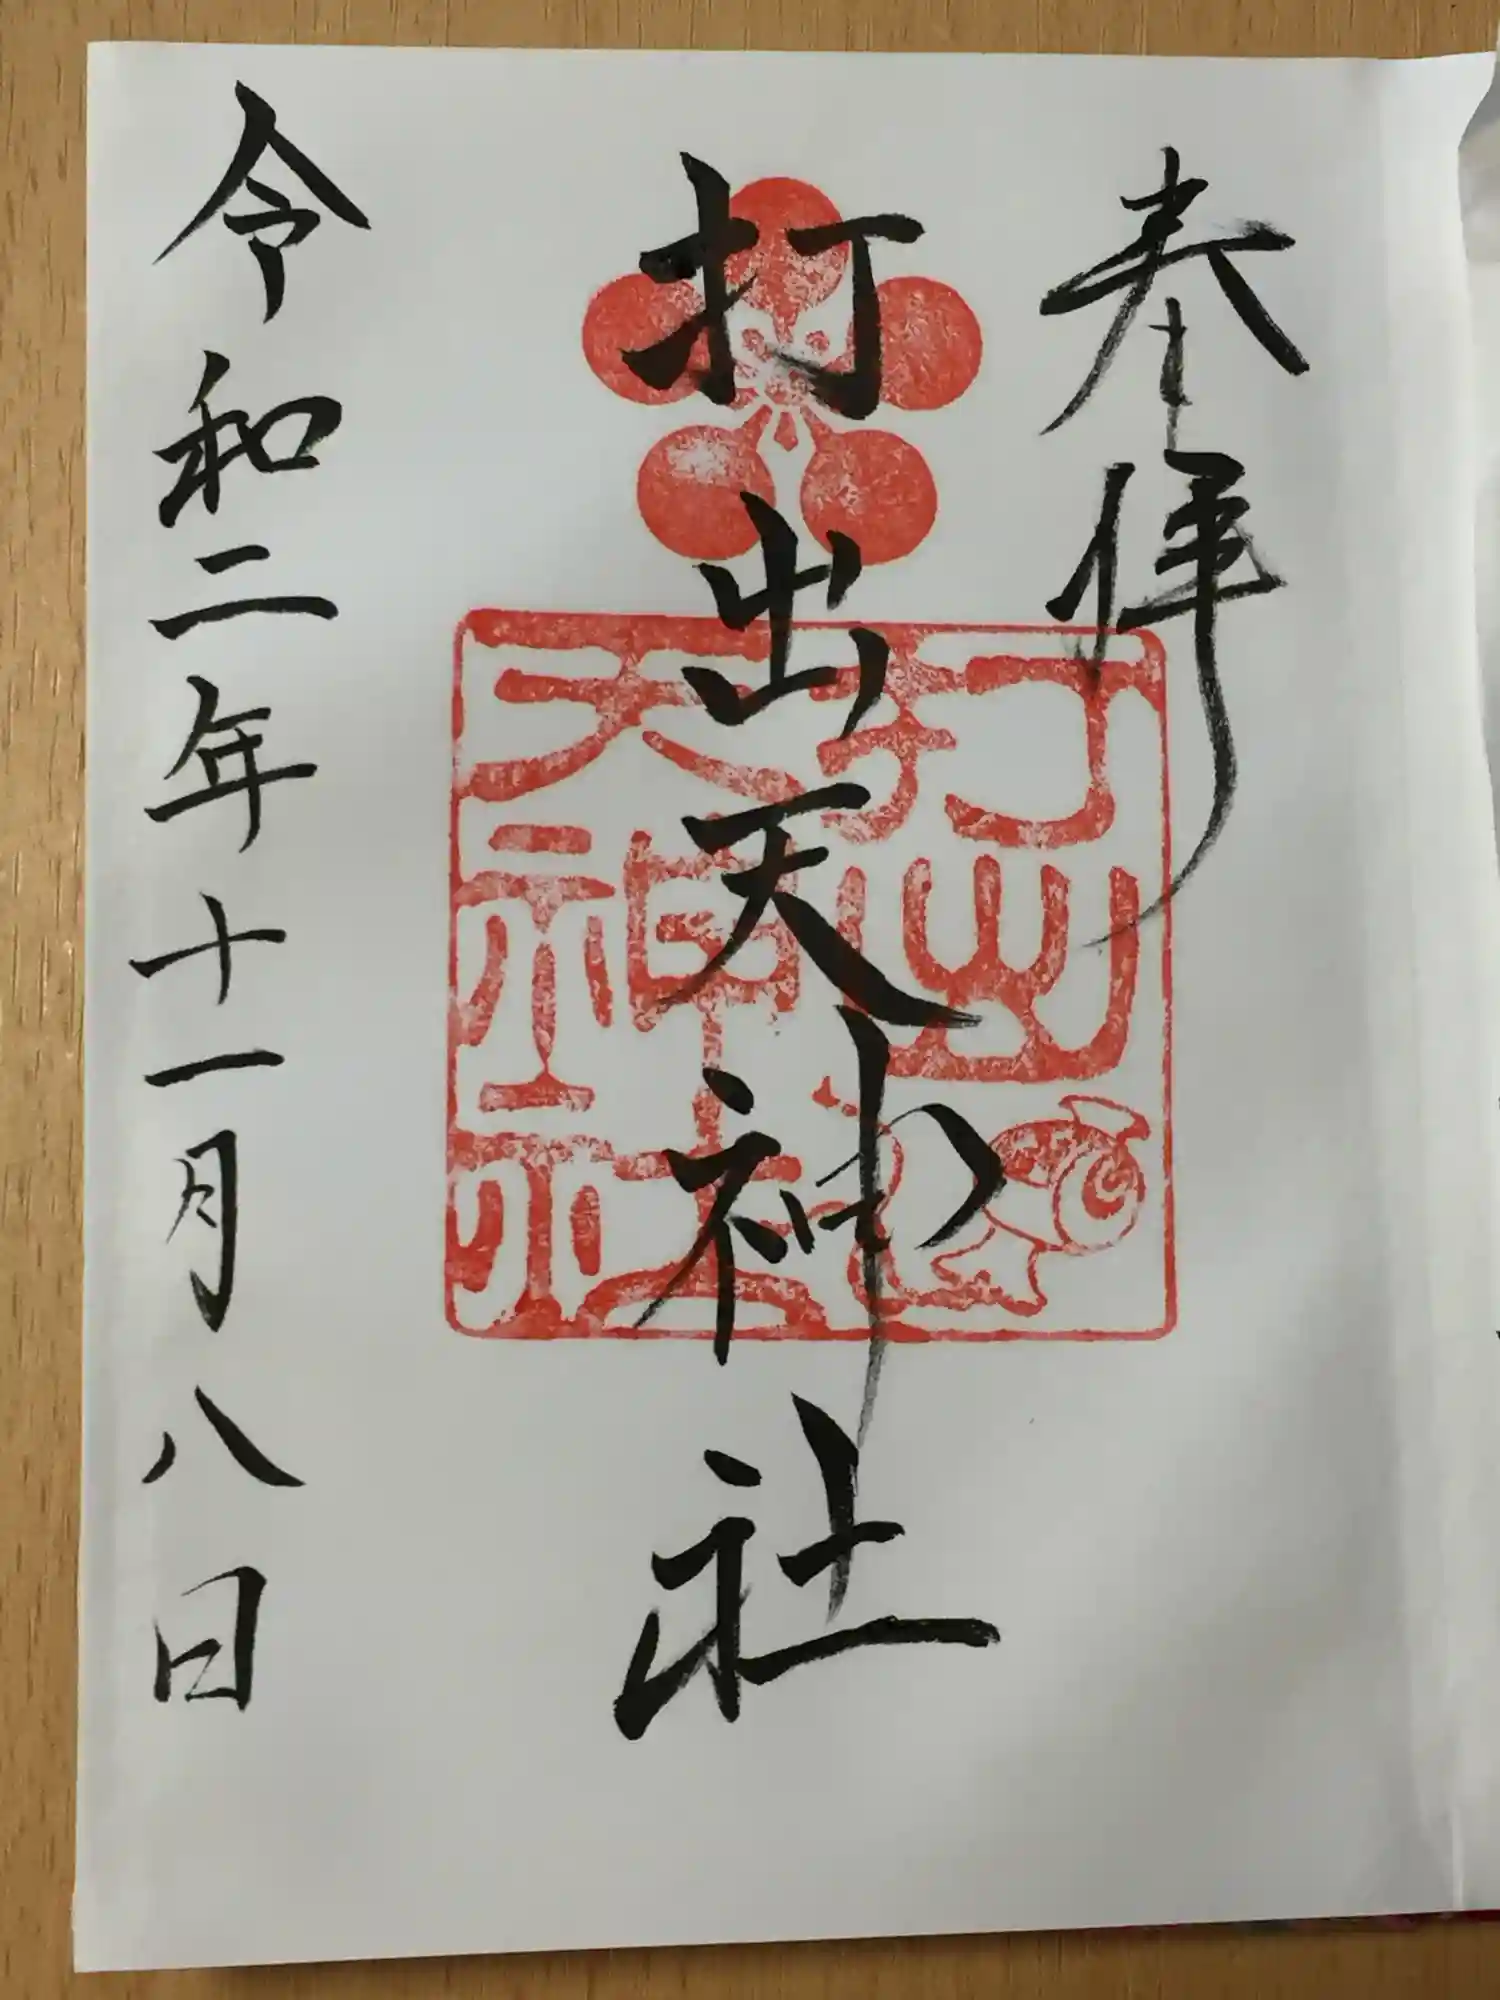 奉拝
打出天神社
打出
天神社
令和二年十一月八日